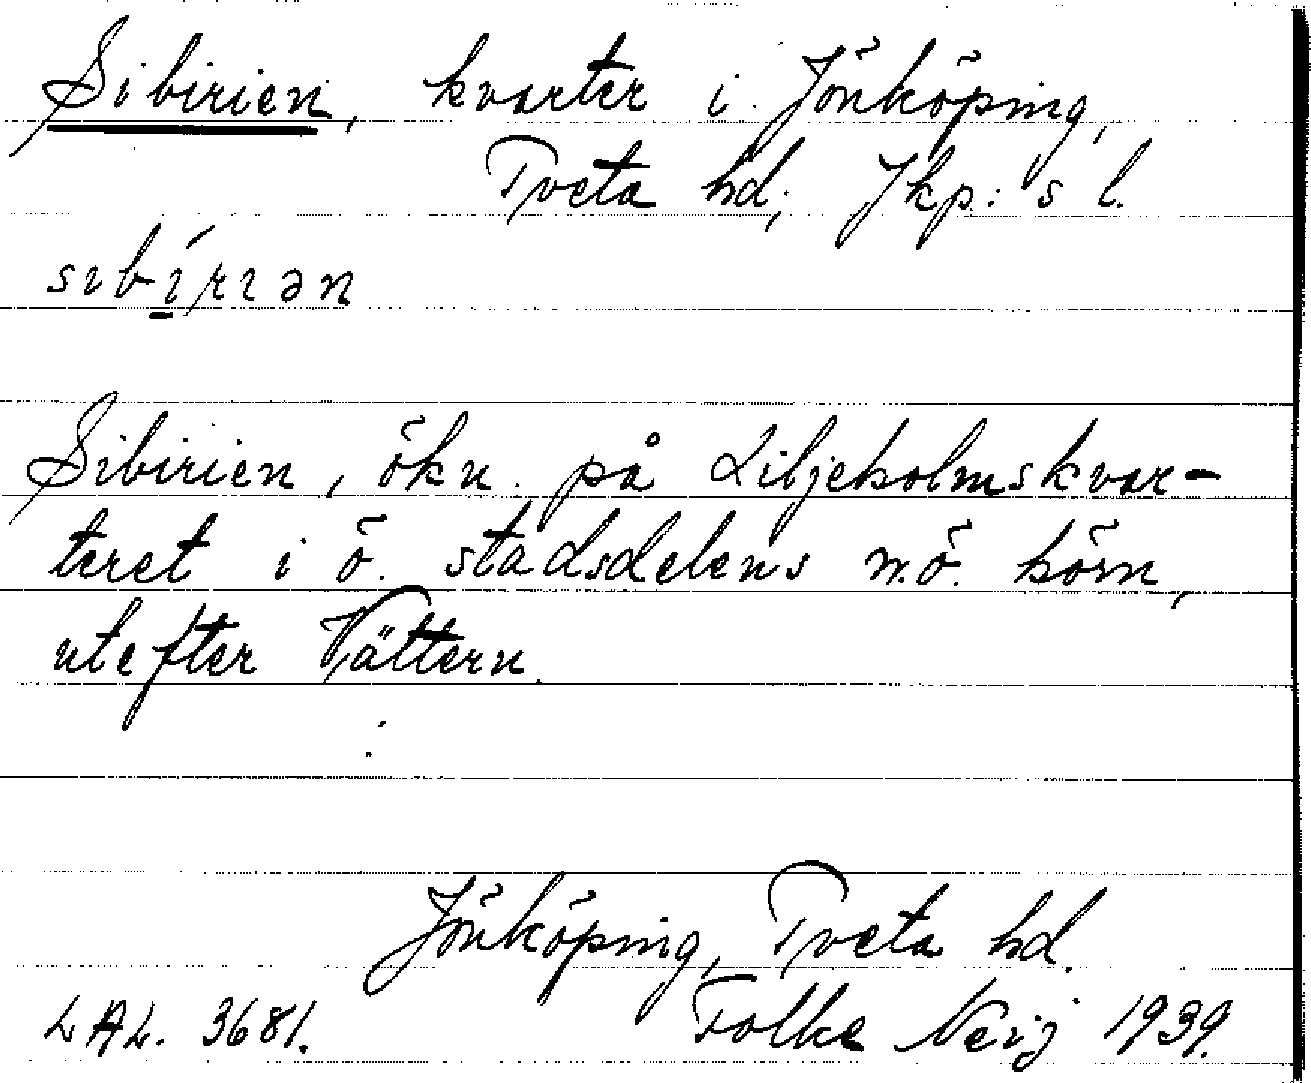 Sibirien, kvarter i Jönköping,
Tveta hd, Jkp: s l.
sıbíriən
Sibirien, ökn. på Liljeholmskvar-
teret i ö. stadsdelens n.ö. hörn,
utefter Vättern.
Jönköping, Tveta hd.
LAL. 3681. Folke Neij 1939.